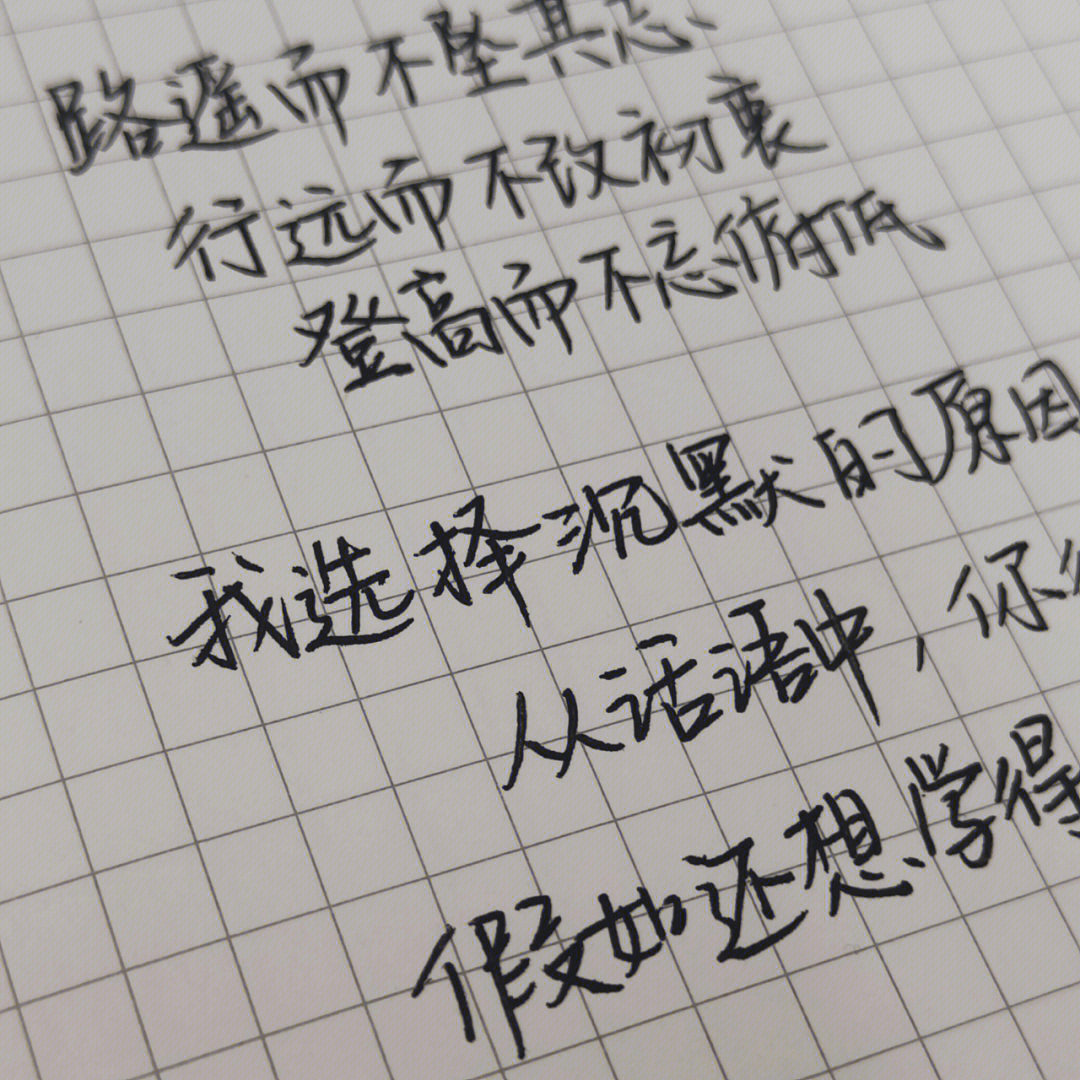 路遥而不坠其志
行远而不改初衷
登高而不忘俯低
我选择沉默的原因
从话语中，你
假如还想学得